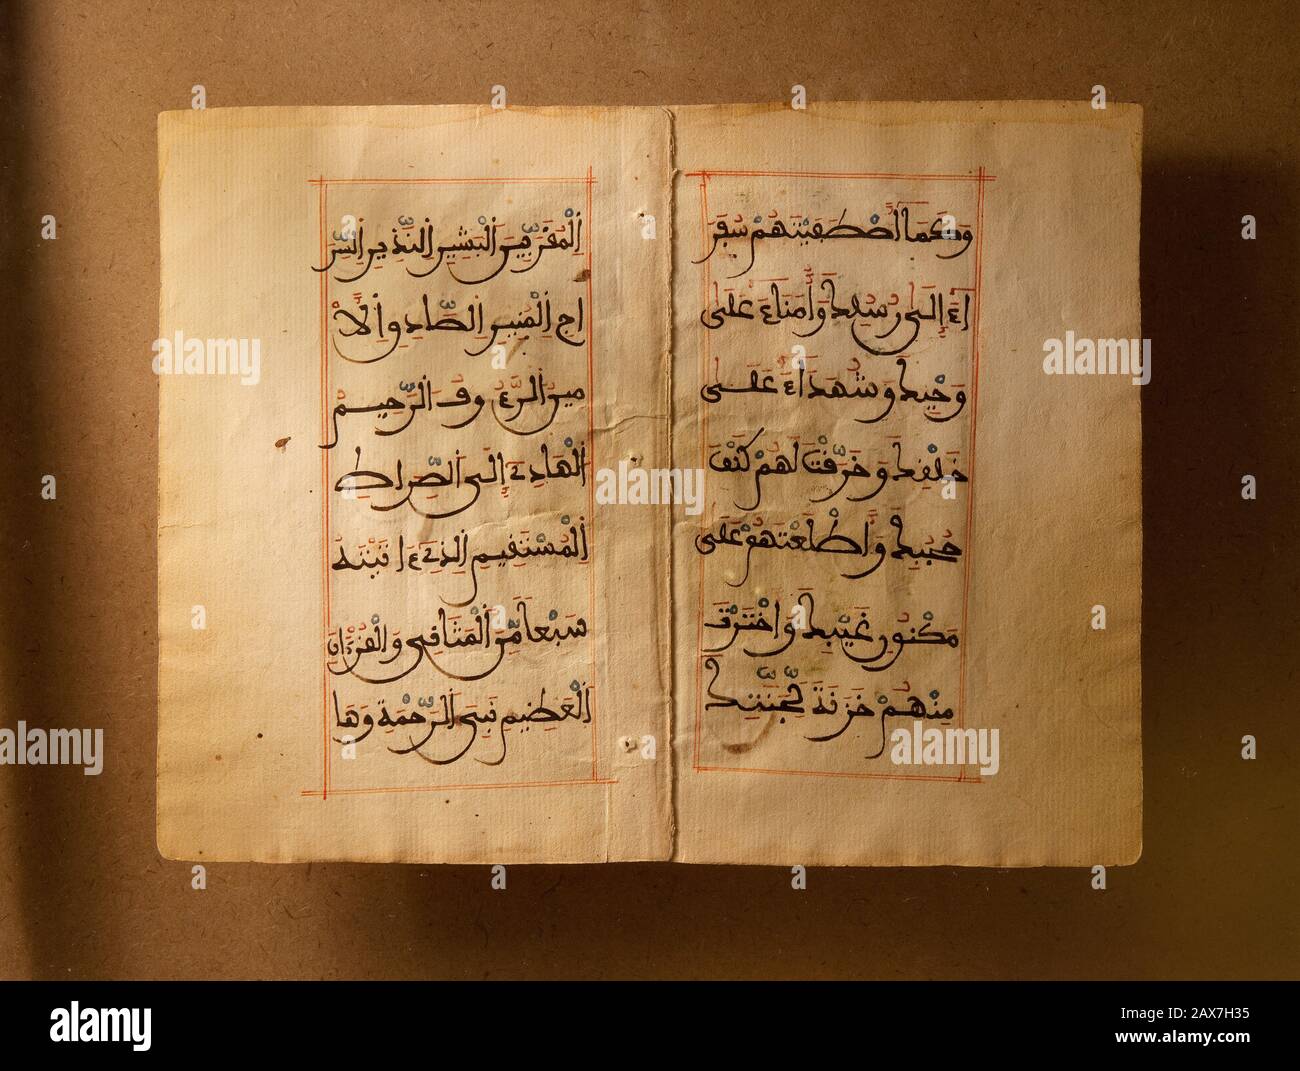 وكما اصطفيتهم سفر
اء إلى رسلك وأمناء على
وحيك وشهداء على
خلقك وخرقت لهم كنف
حجبك وأطلعتهم على
مكنون غيبك واخترت
منهم خزنة لجنتك
المقربين البشير النذير السر
اج المنير الصادق الأ
مين الرءوف الرحيم
الهادي إلى الصراط
المستقيم الذي ءاتيته
سبعا من المثاني والقرءان
العظيم نبي الرحمة وها
alamy
Image ID: 2AX7H35
www.alamy.com